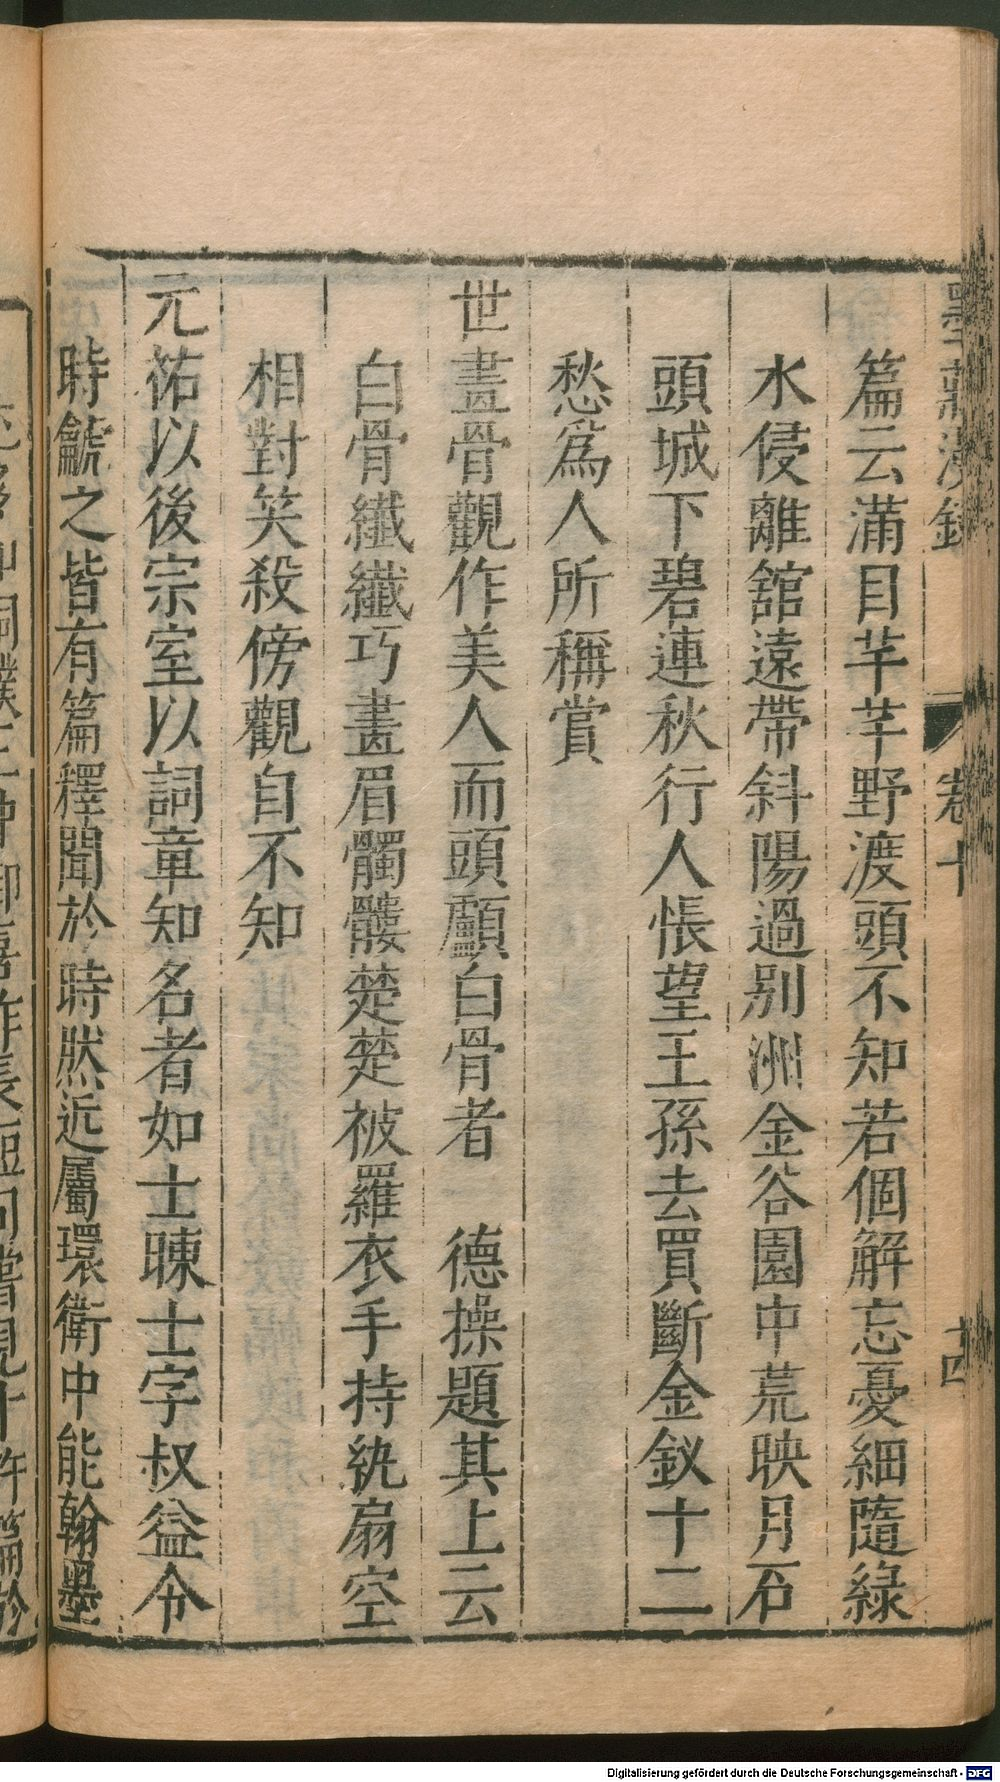 墨莊漫錄
卷十
十四
篇云滿目芊芊野渡頭不知若個解忘憂細隨綠
水侵離舘遠帶斜陽過別洲金谷園中荒映月石
頭城下碧連秋行人悵望王孫去買斷金釵十二
愁爲人所稱賞
世畫骨觀作美人而頭顱白骨者 德操題其上云
白骨纖纖巧畫眉髑髏楚楚被羅衣手持紈扇空
相對笑殺傍觀自不知
元祐以後宗室以詞章知名者如士暕士字叔益令
時龥之皆有篇釋聞於時然近屬環衛中能翰墨
Digitalisierung gefördert durch die Deutsche Forschungsgemeinschaft - DFG